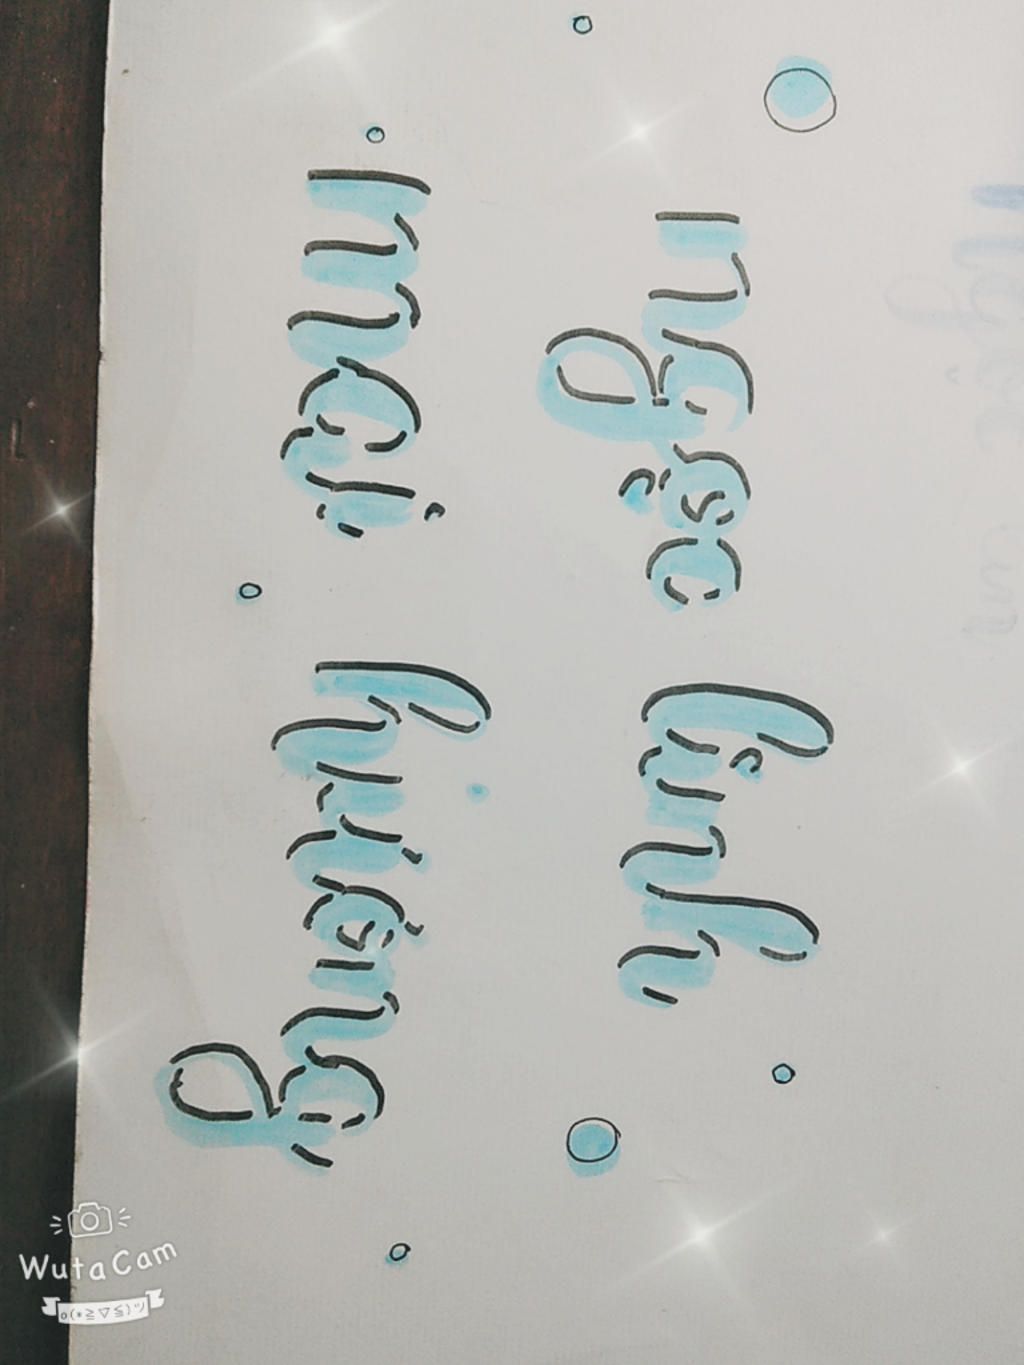 ngọc linh
mai hương
WutaCam
o(*≧▽≦)ツ